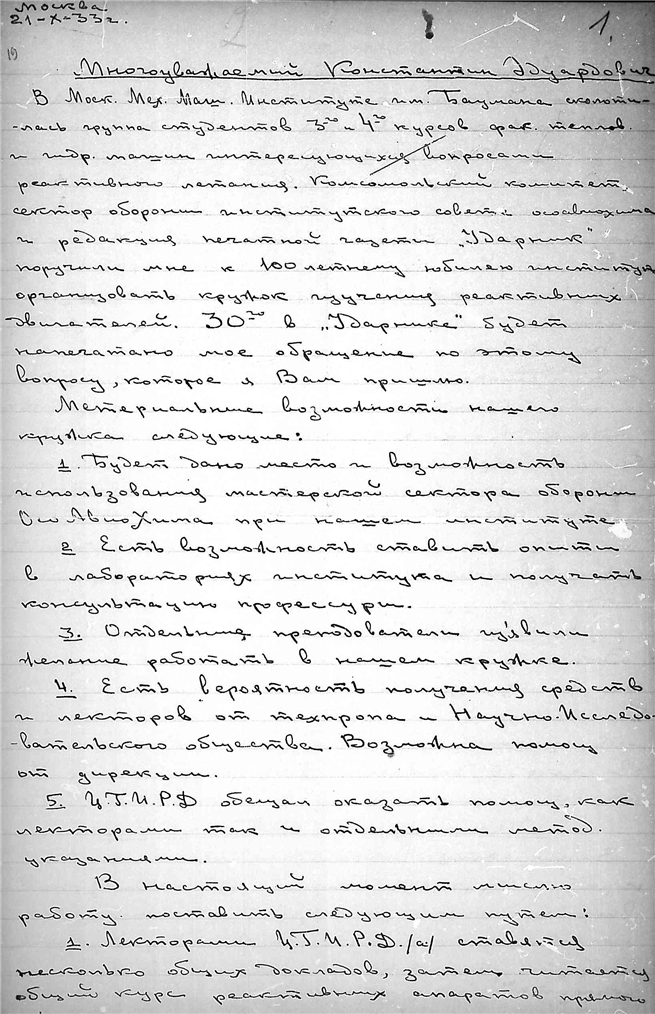 Москва.
21-X-33г.
1.
19
Многоуважаемый Константин Эдуардович
В Моск. Мех. Маш. Институте им. Баумана сколоти-
-лась группа студентов 3го и 4го курсов фак. теплов.
и гидр. машин интересующихся вопросами
реактивного летания. Комсомольский комитет,
сектор обороны институтского совета осоавиахима
и редакция печатной газеты „Ударник"
поручили мне к 100летнему юбилею института
организовать кружок изучения реактивных
двигателей. 30го в „Ударнике" будет
напечатано мое обращение по этому
вопросу, которое я Вам пришлю.
Материальные возможности нашего
кружка следующие:
1. Будет дано место и возможность
использования мастерской сектора обороны
ОсоАвиоХима при нашем институте
2 Есть возможность ставить опыты
в лабораториях института и получать
консультацию профессуры.
3. Отдельные преподователи изъявили
желание работать в нашем кружке.
4. Есть вероятность получения средств
и лекторов от техпропа и Научно-Исследо-
-вательского общества. Возможна помощ
от дирекции.
5. Ц.Г.И.Р.Д обещал оказать помощ, как
лекторами так и отдельными метод.
указаниями.
В настоящий момент мыслю
работу поставить следующим путем:
1. Лекторами Ц.Г.И.Р.Д./а/ ставятся
несколько общих докладов, затем читается
общий курс реактивных аппаратов прямого